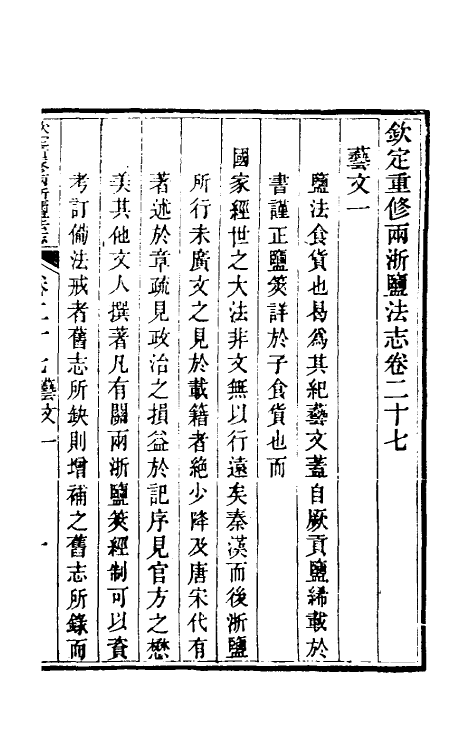 欽定重修兩浙鹽法志卷二十七
藝文一
鹽法食貨也曷爲其紀藝文蓋自厥貢鹽絺載於
書謹正鹽筴詳於子食貨也而
國家經世之大法非文無以行遠矣秦漢而後浙鹽
所行未廣文之見於載籍者絶少降及唐宋代有
著述於章疏見政治之損益於記序見官方之懋
美其他文人撰著凡有關兩浙鹽筴經制可以資
考訂備法戒者舊志所缺則增補之舊志所錄而
卷二十七藝文一 一